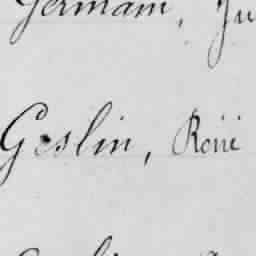 Germain, Ju
Geslin, René